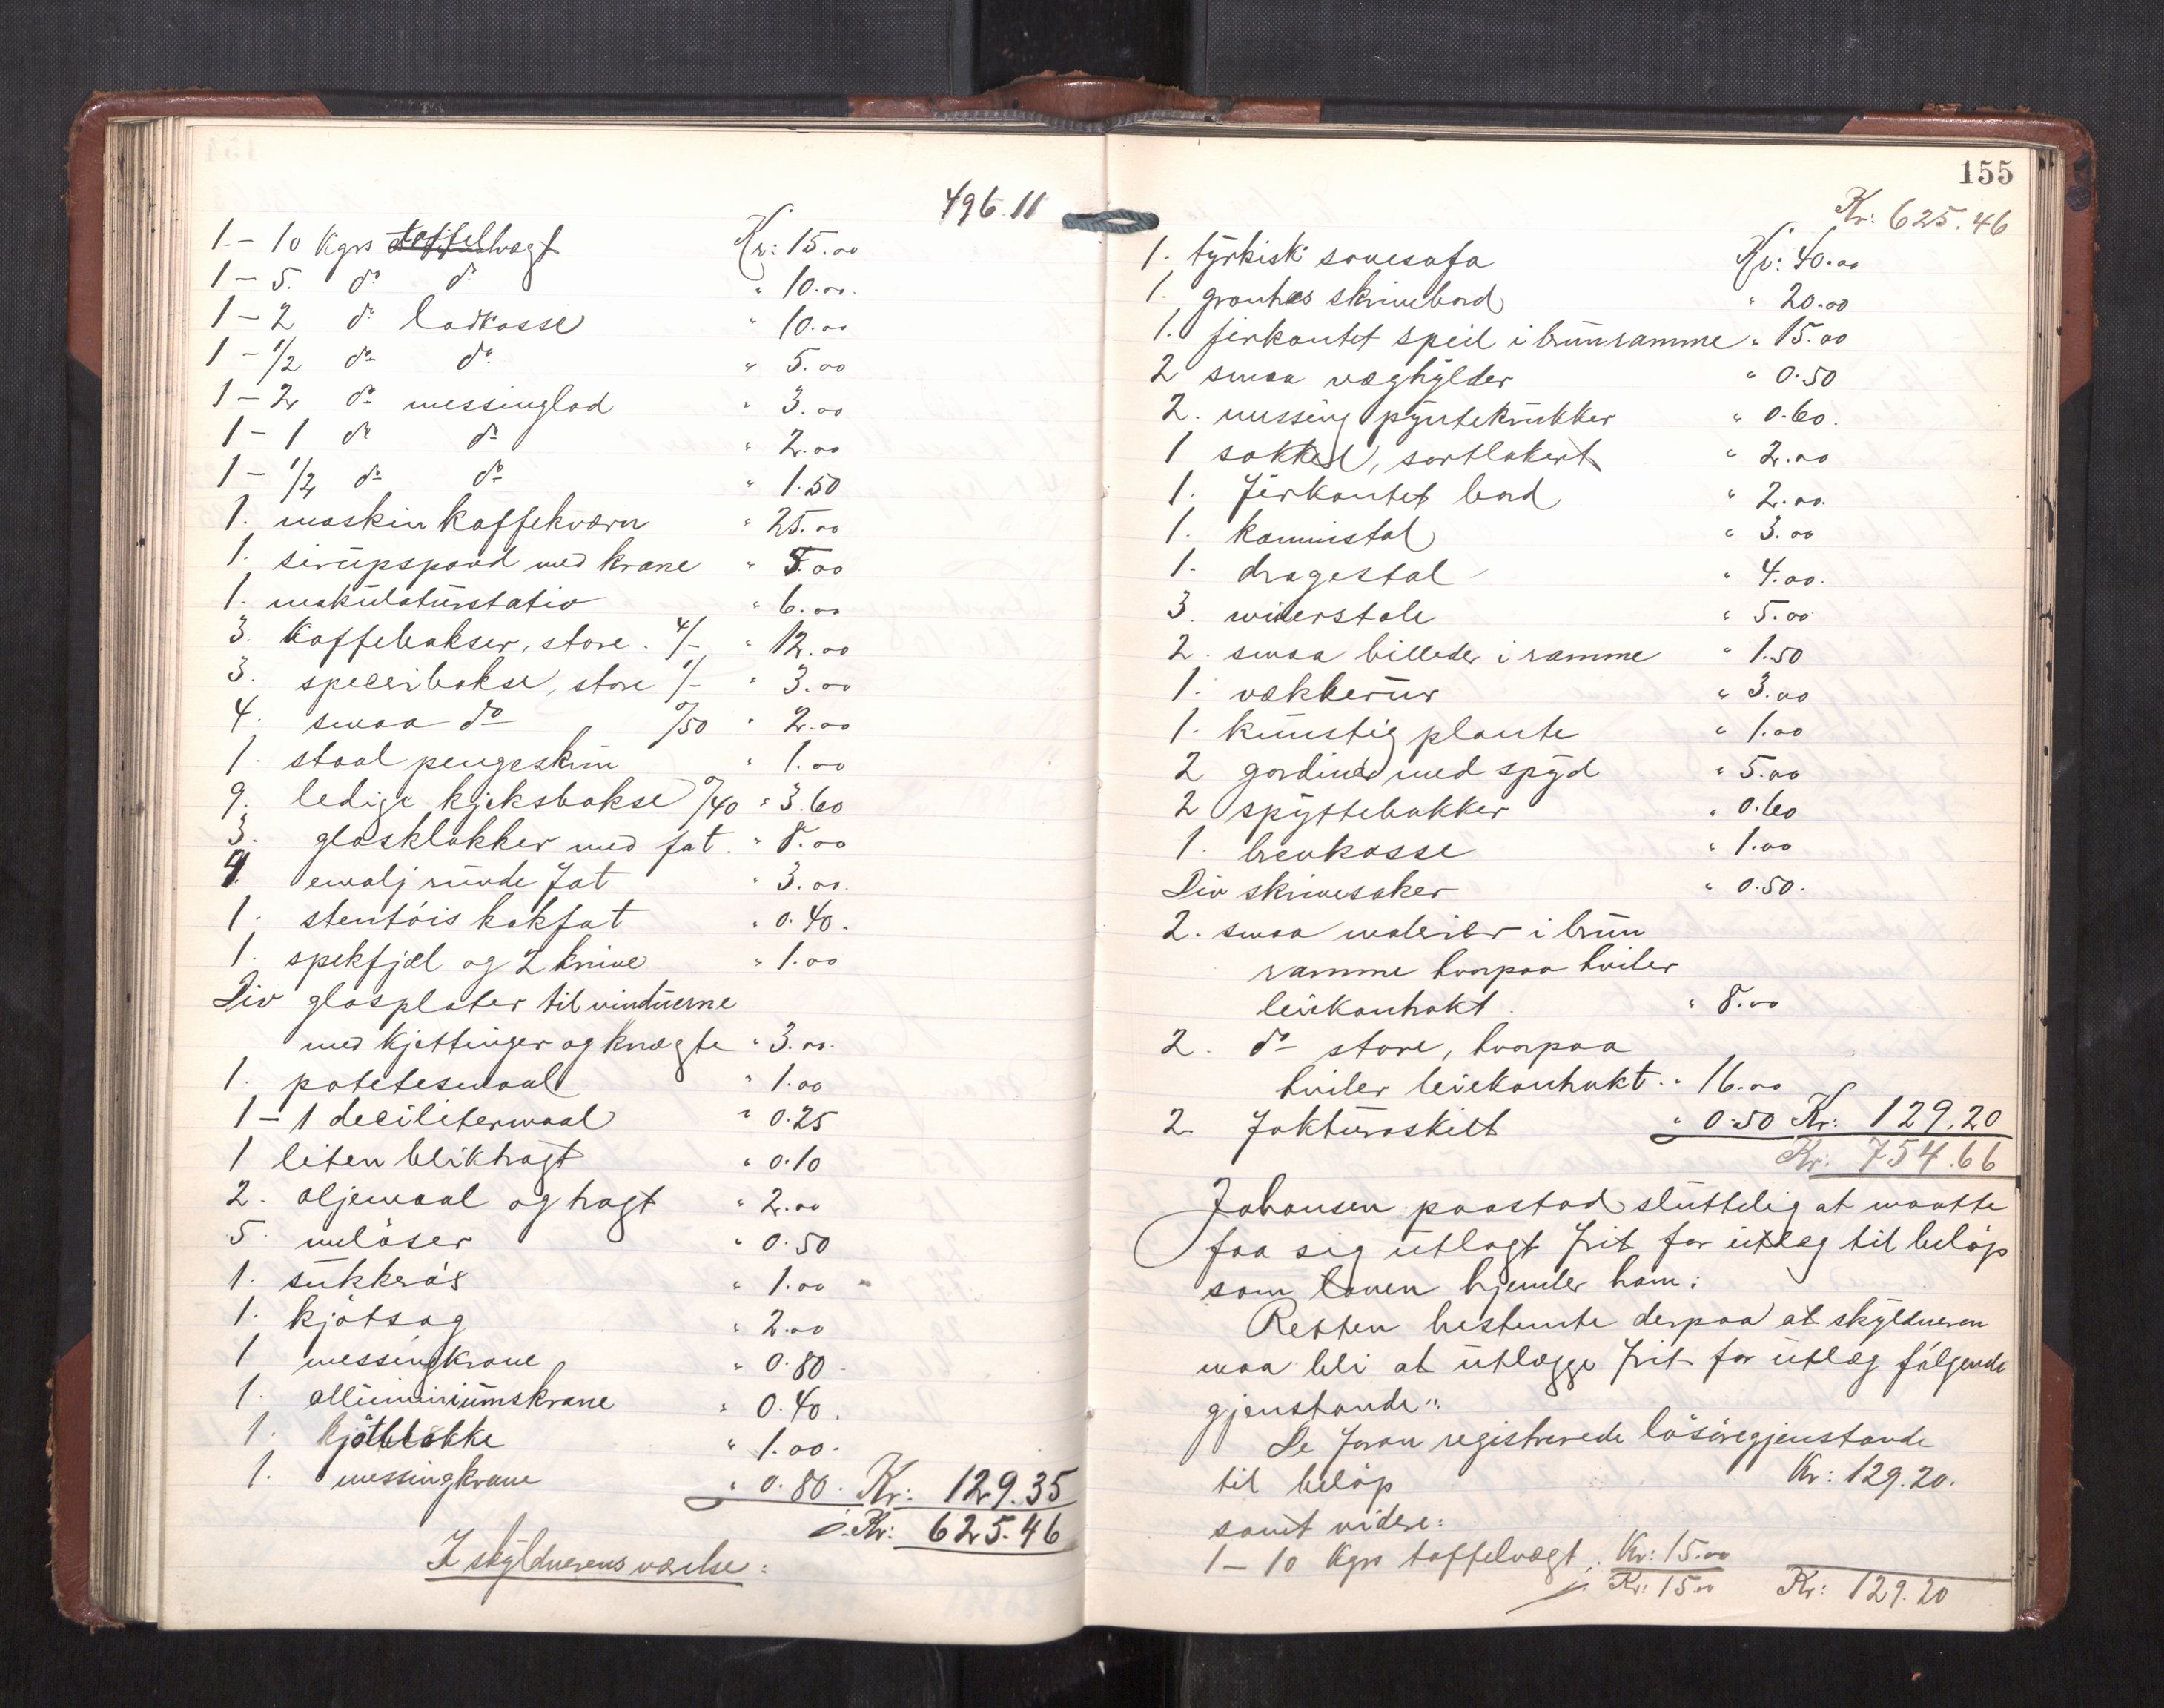 496.11
1.- 10 Kgrs taffelvægt Kr: 15.00
1 - 5. do do " 10.00.
1 - 2 do lodkasse " 10.00
1 - 1/2 do do " 5.00
1 - 2 do messinglod " 3.00
1 - 1 do do " 2.00
1 - 1/2 do do " 1.50
1. maskin kaffekværn " 25.00
1. sirupspand med krane " 5.00
1. makulaturstativ " 6.00
3. kaffebokser, store. 4/- " 12.00
3. speceribokse, store 1/- " 3.00
4. smaa do 0/50 " 2.00
1. staal pengeskrin " 1.00
9. ledige kjeksbokse 0/40 " 3.60
3. glasklokker med fat. " 8.00
4. emalj runde fat " 3.00.
1. stentöis kakfat " 0.40.
1. spekfjæl og 2 knive " 1.00
Div glasplater til vinduerne
med kjettinger og knægte " 3.00.
1. potetesmaal " 1.00
1 - 1 decilitermaal " 0.25
1 liten bliktragt " 0.10
2. oljemaal og tragt " 2.00
5. melöser " 0.50
1. sukkerös " 1.00
1. kjötsag " 2.00
1 messingkrane " 0.80.
1. alluminiumskrane " 0.40.
1. kjötblokke " 1.00.
1. messingkrane " 0.80. Kr: 129.35
Kr: 625.46
I skyldnerens værelse:
155
Kr: 625.46
1. tyrkisk sovesofa Kr: 40.00
1. skrivebord " 20.00
1. firkantet speil i brunramme " 15.00
2 smaa væghylder " 0.50
2. messing pyntekrukker " 0.60.
1 sokkel, sortlakert " 2.00
1. firkantet bord " 2.00.
1. kaminstol " 3.00
1. dragestol " 4.00.
3. wienerstole " 5.00
2. smaa billeder i ramme " 1.50
1. vækkerur " 3.00
1. kunstig plante " 1.00
2 gardiner med spyd " 5.00
2 spyttebakker " 0.60
1. brevkasse " 1.00
Div skrivesaker " 0.50.
2. smaa malerier i brun
ramme hvorpaa hviler
leiekontrakt. " 8.00
2. do store, hvorpaa
hviler leiekontrakt. " 16.00
2 fakturaskilt " 0.50 Kr: 129.20
Kr: 754.66
Johansen paastod sluttelig at maatte
faa sig utlagt frit for utlæg til beløp
som loven hjemler ham:
Retten bestemte derpaa at skyldneren
maa bli at utlægge frit for utlæg følgende
gjenstande":
De foran registrerede løsøregjenstande
til beløp Kr: 129.20.
samt videre:
1 - 10 Kgrs taffelvægt. Kr: 15.00
Kr: 15.00 Kr: 129.20